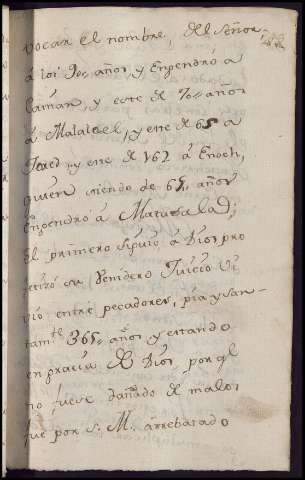 vocar el nombre, del Señor
á los 90,, años, y Enpendró á
Caiman, y este de 70,, años
á Malaleel, y ene de 65 a
Jered y ene de 162 á Enoch,
quien siendo de 65,, años
Enpendró á Matusalad;
El primero sipuió á Dios pro
fetizó su Venidero Juicio Vi
vió entre pecadores, pia y san-
tam.te 365,, años y estando
en pracia de Dios, por q.e
no fuese dañado de malos
fue por S. M. arrebatado